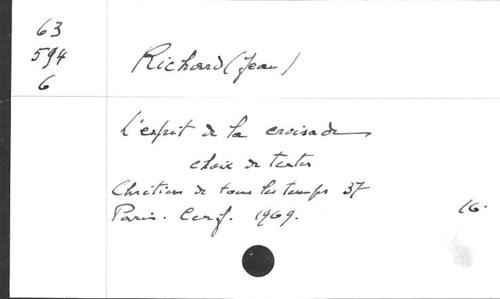 63
594
6
Richard (Jean)
L'esprit de la croisade
choix de textes
Chrétiens de tous les temps 37
Paris. Cerf. 1969.
16.